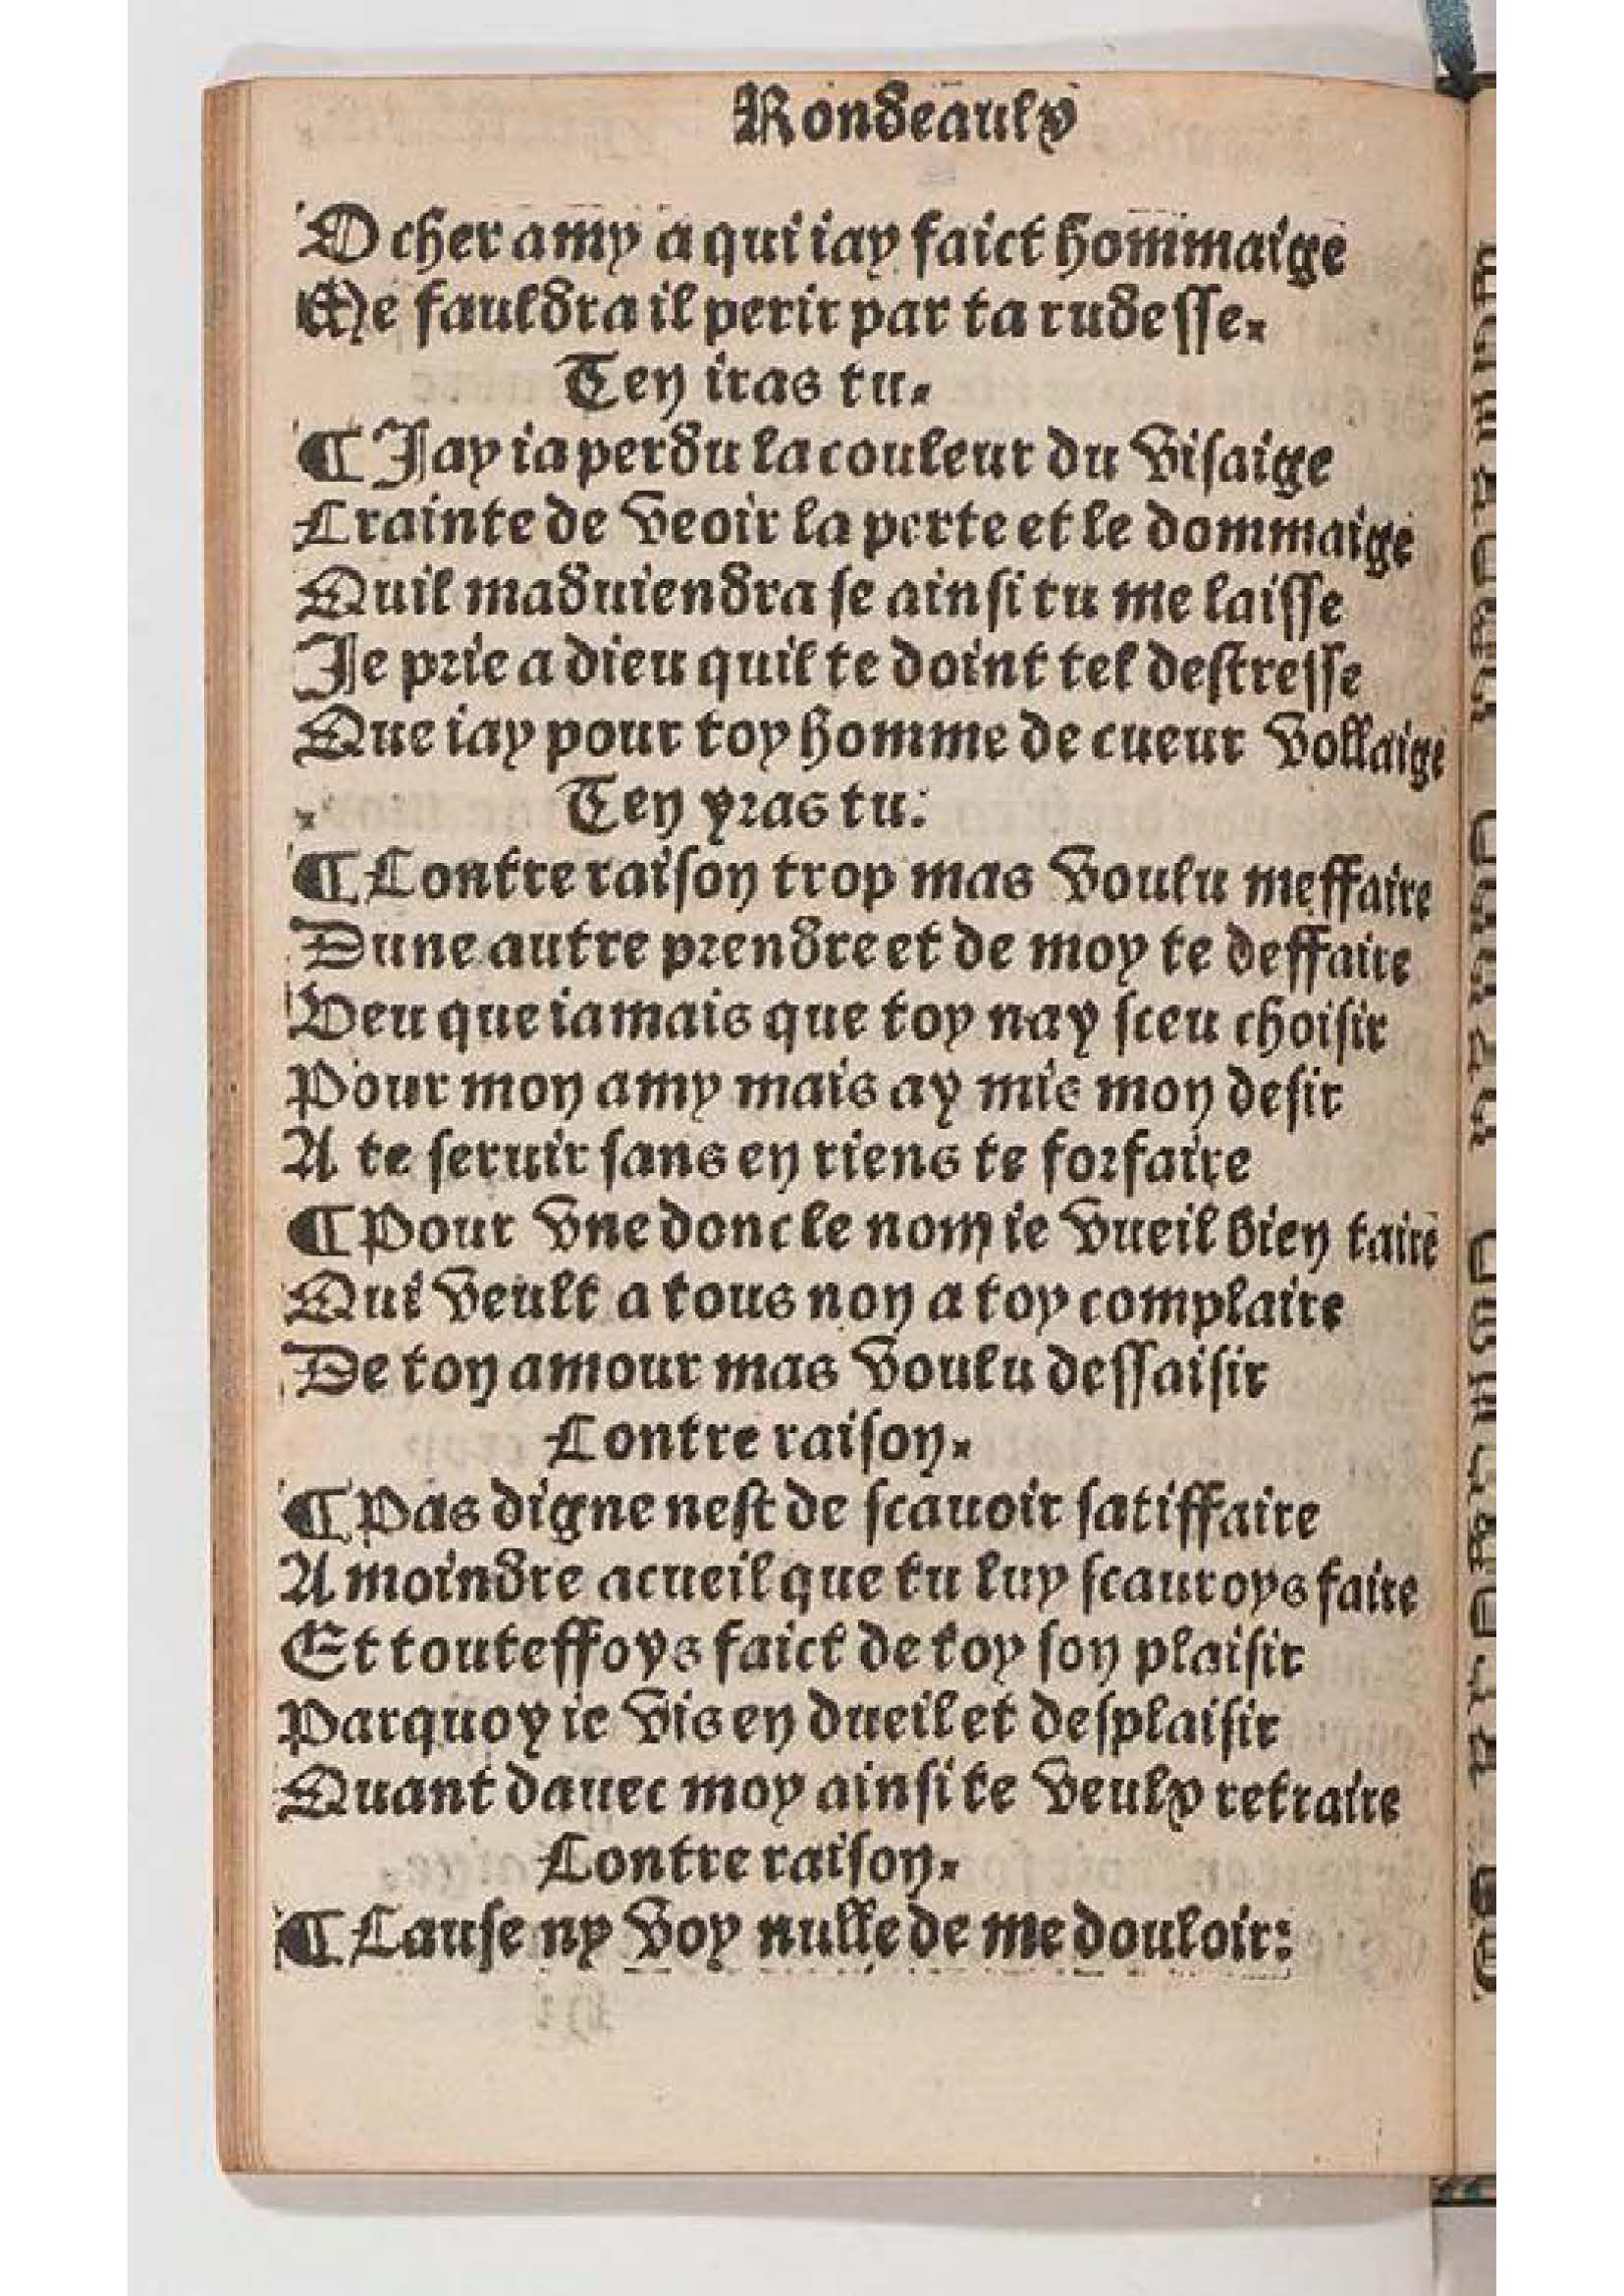 Rondeaulx
O cher amy a qui iay faict hommaige
Me fauldra il perir par ta rudesse.
Ten iras tu.
¶ Jay ia perdu la couleur du visaige
Crainte de veoir la perte et le dommaige
Quil maduiendra se ainsi tu me laisse
Je prie a dieu quil te doint tel destresse
Que iay pour toy homme de cueur vollaige
Ten yras tu.
¶ Contre raison trop mas voulu meffaire
Dune autre prendre et de moy te deffaire
Veu que iamais que toy nay sceu choisir
Pour mon amy mais ay mis mon desir
A te seruir sans en riens te forfaire
¶ Pour vne donc le nom ie vueil bien taire
Qui veult a tous non a toy complaire
De ton amour mas voulu dessaisir
Contre raison.
¶ Pas digne nest de scauoir satiffaire
A moindre acueil que tu luy scauroys faire
Et touteffoys faict de toy son plaisir
Parquoy ie vis en dueil et desplaisir
Quant dauec moy ainsi te veulx retraire
Contre raison.
¶ Cause ny voy nulle de me douloir: